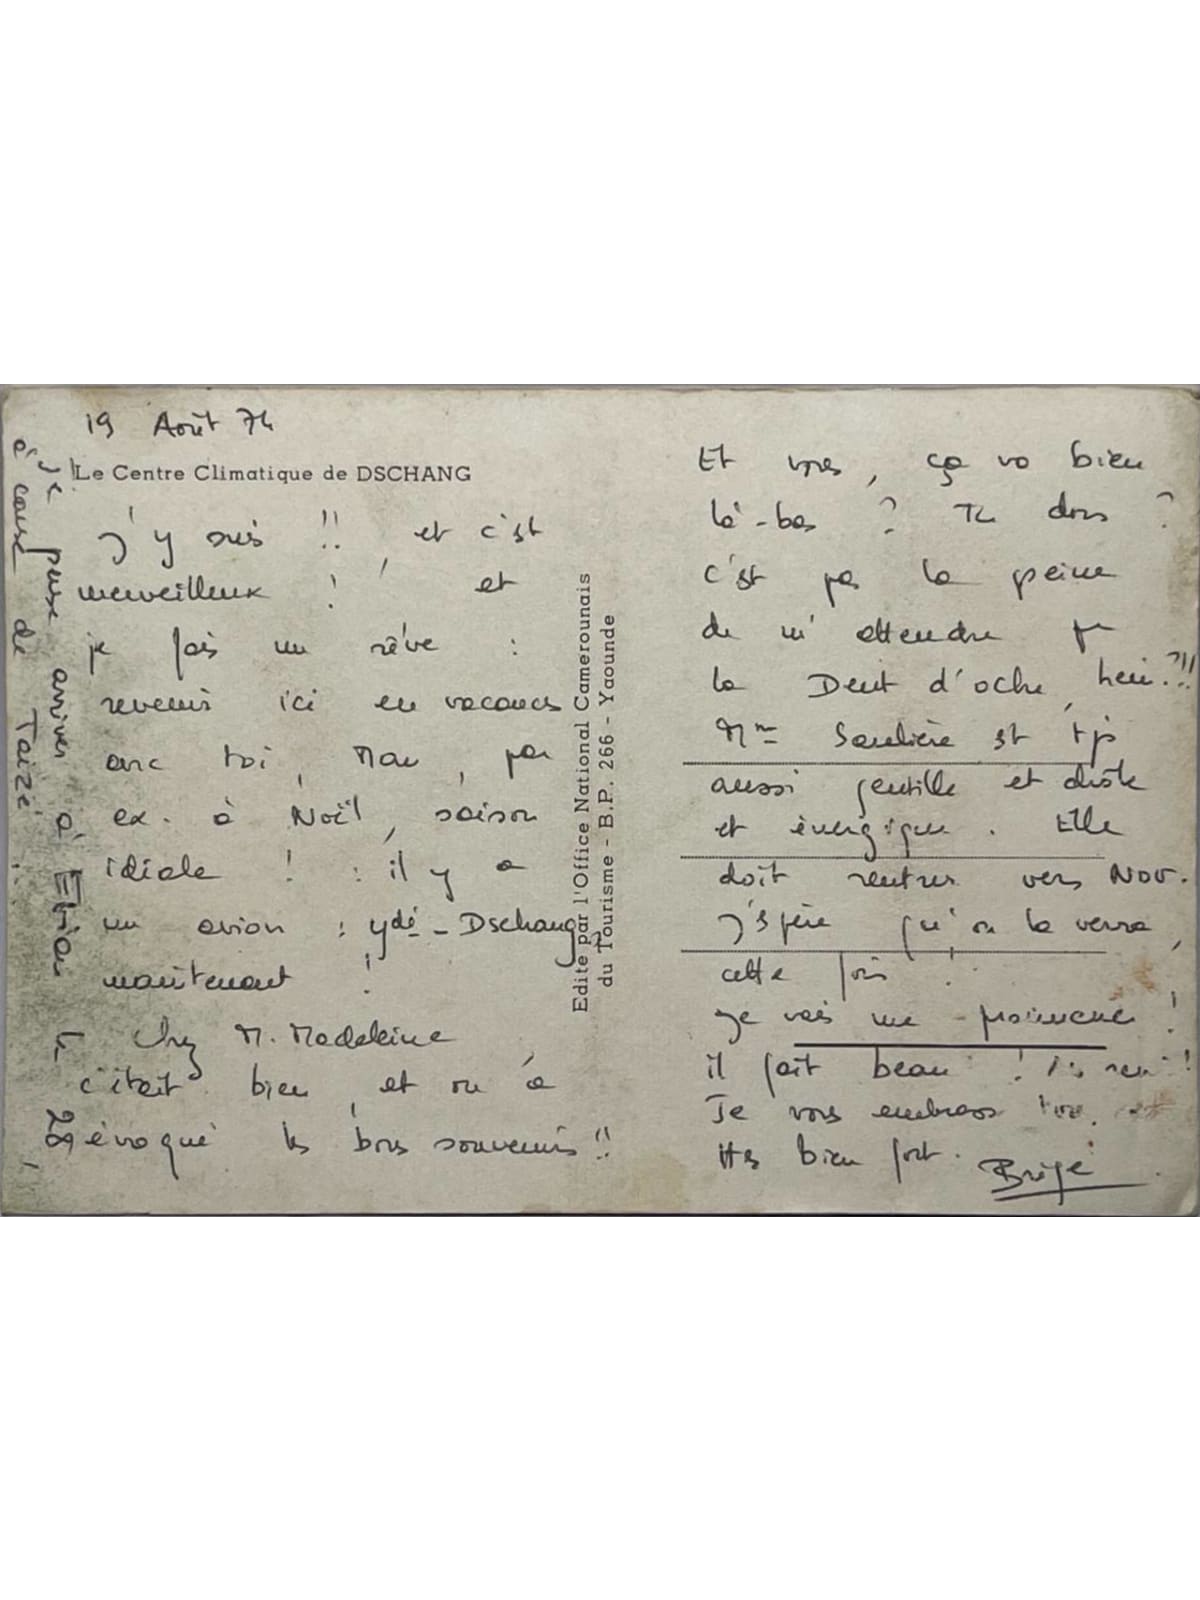 19 Août 74
Le Centre Climatique de DSCHANG
J'y suis !! et c'est
merveilleux ! et
je fais un rêve :
revenir ici en vacances
avec toi, Man, par
ex. à Noël, saison
idéale ! : il y a
un avion : ydé - Dschang
maintenant !
Chez M. Madeleine
c'était bien, et on a
évoqué les bons souvenirs !!
Je pense arriver à Evian le 29,
à cause de Taizé :
Edité par l'Office National Camerounais
du Tourisme - B.P. 266 - Yaounde
Et vous, ça va bien
là-bas ? Tu dors ?
c'est pas la peine
de m'attendre pr
la Dent d'oche, hein ?!!
Mme Saulière est tjs
aussi gentille et drôle
et énergique. Elle
doit rentrer vers Nov.
J'espère qu'on la verra,
cette fois !
Je vais me promener !
il fait beau !
Je vous embrasse
tts bien fort.
Brige